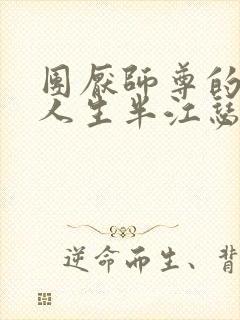 团厌师尊的
人生半江瑟
逆命而生、背